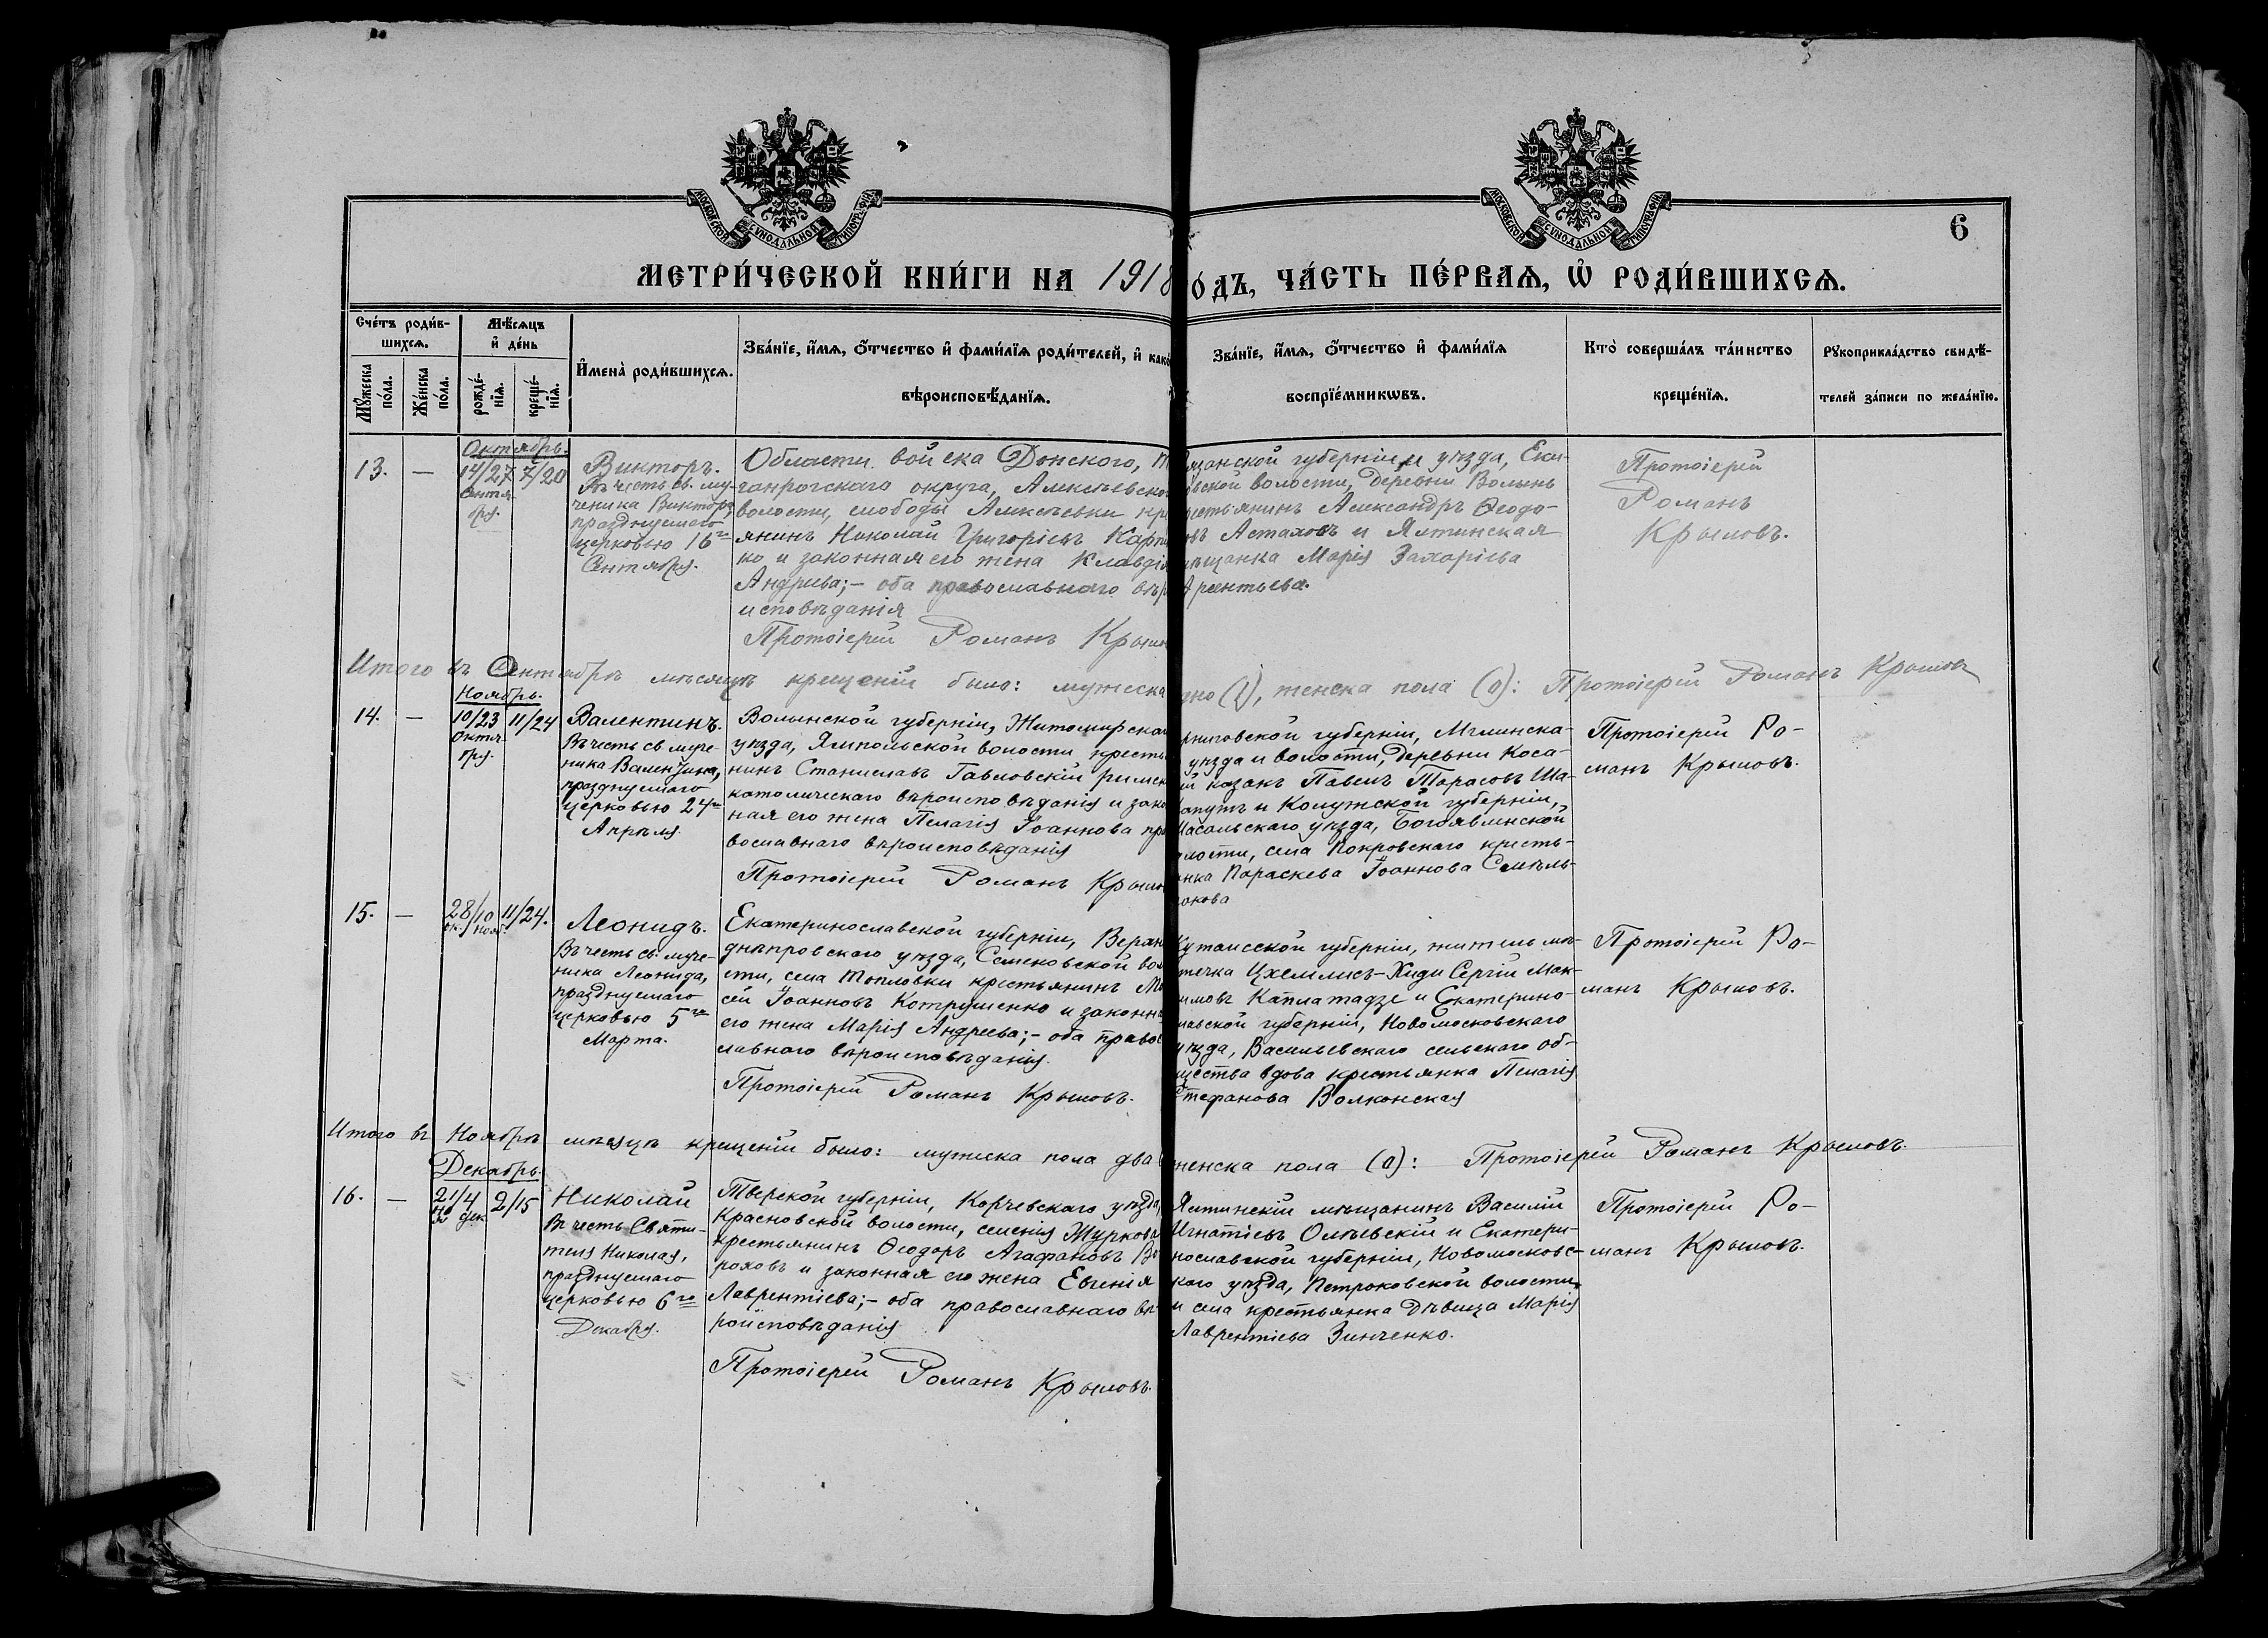 МОСКОВСКОЙ СѴНОДАЛЬНОЙ ТИПОГРАФІИ
МОСКОВСКОЙ СѴНОДАЛЬНОЙ ТИПОГРАФІИ
6
МЕТРИ́ЧЕСКОЙ КНИ́ГИ НА 1918
о́дъ, ЧА́СТЬ ПЕ́РВАѦ, Ѡ҆ РОДИ́ВШИХСѦ.
Сче́тъ роди́в-
шихсѧ.
Мꙋ́жеска
по́ла.
Же́нска
по́ла.
Мѣ́сѧцъ
и҆ де́нь
рожде́-
нїѧ.
креще́-
нїѧ.
И҆мена̀ роди́вшихсѧ.
Зва́нїе, и҆́мѧ, ѻ҆́тчество и҆ фами́лїѧ роди́телей, и҆ како
вѣроисповѣ́данїѧ.
Зва́нїе, и҆́мѧ, ѻ҆́тчество и҆ фами́лїѧ
воспрїе́мникѡвъ.
Кто̀ соверша́лъ та́инство
креще́нїѧ.
Рꙋкоприкла́дство свидѣ́-
телей за́писи по жела́нїю.
Октябрь.
13.
—
14/27
Сентя-
бря.
7/20
Викторъ.
Въ честь св. му-
ченика Виктора,
празднуемаго
церковью 16го
Сентября.
Области войска Донского, Т
ганрогскаго округа, Алексѣевско
волости, слободы Алексѣевки кре
янинъ Николай Григорьевъ Карпе
ко и законная его жена Клавдія
Андреева;- оба православнаго вѣр
исповѣданія
Протоіерей Романъ Крыло
язанской губерніи и уѣзда, Ека-
овской волости, деревни Волынь
естьянинъ Александръ Ѳеодо-
овъ Астаховъ и Ялтинская
мѣщанка Марія Захаріева
Арентьева.
Протоіерей
Романъ
Крыловъ.
Итого въ Сентябрѣ мѣсяцѣ крещеній было: мужеска
дно (1), женска пола (0): Протоіерей Романъ Крыловъ
Ноябрь.
14.
—
10/23
Октя-
бря.
11/24
Валентинъ.
Въ честь св. муче-
ника Валентина,
празднуемаго
церковью 24го
Апрѣля.
Волынской губерніи, Житомирска
уѣзда, Ямпольской волости кресть
нинъ Станиславъ Гавловскій римск
католическаго вѣроисповѣданія и зако
ная его жена Пелагія Іоаннова пра
вославнаго вѣроисповѣданія
Протоіерей Романъ Крыло
рниговской губерніи, Мглинска-
уѣзда и волости, деревни Коса-
й казакъ Павелъ Тарасовъ Ша-
апутъ и Калужской губерніи,
Масальскаго уѣзда, Богоявленской
лости, села Покровскаго кресть-
нка Параскева Іоаннова Смѣль-
акова
Протоіерей Ро-
манъ Крыловъ.
15.
—
28/10
ок. нояб.
11/24.
Леонидъ.
Въ честь св. муче-
ника Леонида,
празднуемаго
церковью 5го
Марта.
Екатеринославской губерніи, Верхн
днѣпровскаго уѣзда, Семеновской вол
сти, села Топловки крестьянинъ Мо
сей Іоанновъ Котрушенко и законна
его жена Марія Андреева;- оба право
славнаго вѣроисповѣданія.
Протоіерей Романъ Крыловъ.
Кутаисской губерніи, житель мѣ-
течка Цхемлисъ-Хиди Сергій Мак-
имовъ Каплатадзе и Екатерино-
лавской губерніи, Новомосковскаго
уѣзда, Васильевскаго сельскаго об-
щества вдова крестьянка Пелагія
Стефанова Волконская
Протоіерей Ро-
манъ Крыловъ.
Итого въ Ноябрѣ мѣсяцѣ крещеній было: мужеска пола два
женска пола (0): Протоіерей Романъ Крыловъ.
Декабрь.
16.
—
21/4
но дек.
2/15
Николай
Въ честь Святи-
теля Николая,
празднуемаго
церковью 6го
Декабря.
Тверской губерніи, Корчевскаго уѣзда,
Красновской волости, селенія Журкова
крестьянинъ Ѳеодоръ Агафановъ Во
роховъ и законная его жена Евгенія
Лаврентіева;- оба православнаго вѣ-
роисповѣданія
Протоіерей Романъ Крыловъ.
Ялтинскій мѣщанинъ Василій
Игнатіевъ Олѣевскій и Екатери-
нославской губерніи, Новомосковс-
каго уѣзда, Петроковской волости
и села крестьянка дѣвица Марія
Лаврентіева Зинченко.
Протоіерей Ро-
манъ Крыловъ.